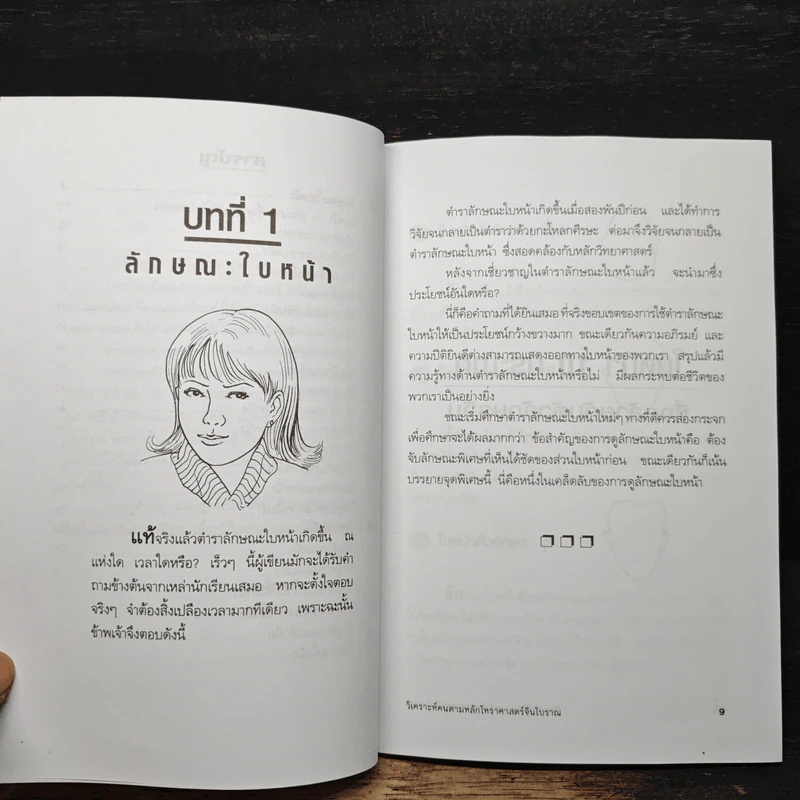 บทที่ 1
ลักษณะใบหน้า
แท้จริงแล้วตำราลักษณะใบหน้าเกิดขึ้น ณ
แห่งใด เวลาใดหรือ? เร็วๆ นี้ผู้เขียนมักจะได้รับคำ
ถามข้างต้นจากเหล่านักเรียนเสมอ หากจะตั้งใจตอบ
จริงๆ จำต้องสิ้งเปลืองเวลามากทีเดียว เพราะฉะนั้น
ข้าพเจ้าจึงตอบดังนี้
ตำราลักษณะใบหน้าเกิดขึ้นเมื่อสองพันปีก่อน และได้ทำการ
วิจัยจนกลายเป็นตำราว่าด้วยกะโหลกศีรษะ ต่อมาจึงวิจัยจนกลายเป็น
ตำราลักษณะใบหน้า ซึ่งสอดคล้องกับหลักวิทยาศาสตร์
หลังจากเชี่ยวชาญในตำราลักษณะใบหน้าแล้ว จะนำมาซึ่ง
ประโยชน์อันใดหรือ?
นี่ก็คือคำถามที่ได้ยินเสมอ ที่จริงขอบเขตของการใช้ตำราลักษณะ
ใบหน้าให้เป็นประโยชน์กว้างขวางมาก ขณะเดียวกันความอภิรมย์ และ
ความปิติยินดีต่างสามารถแสดงออกทางใบหน้าของพวกเรา สรุปแล้วมี
ความรู้ทางด้านตำราลักษณะใบหน้าหรือไม่ มีผลกระทบต่อชีวิตของ
พวกเราเป็นอย่างยิ่ง
ขณะเริ่มศึกษาตำราลักษณะใบหน้าใหม่ๆ ทางที่ดีควรส่องกระจก
เพื่อศึกษาจะได้ผลมากกว่า ข้อสำคัญของการดูลักษณะใบหน้าคือ ต้อง
จับลักษณะพิเศษที่เห็นได้ชัดของส่วนใบหน้าก่อน ขณะเดียวกันก็เน้น
บรรยายจุดพิเศษนี้ นี่คือหนึ่งในเคล็ดลับของการดูลักษณะใบหน้า
วิเคราะห์คนตามหลักโหราศาสตร์จีนโบราณ 9